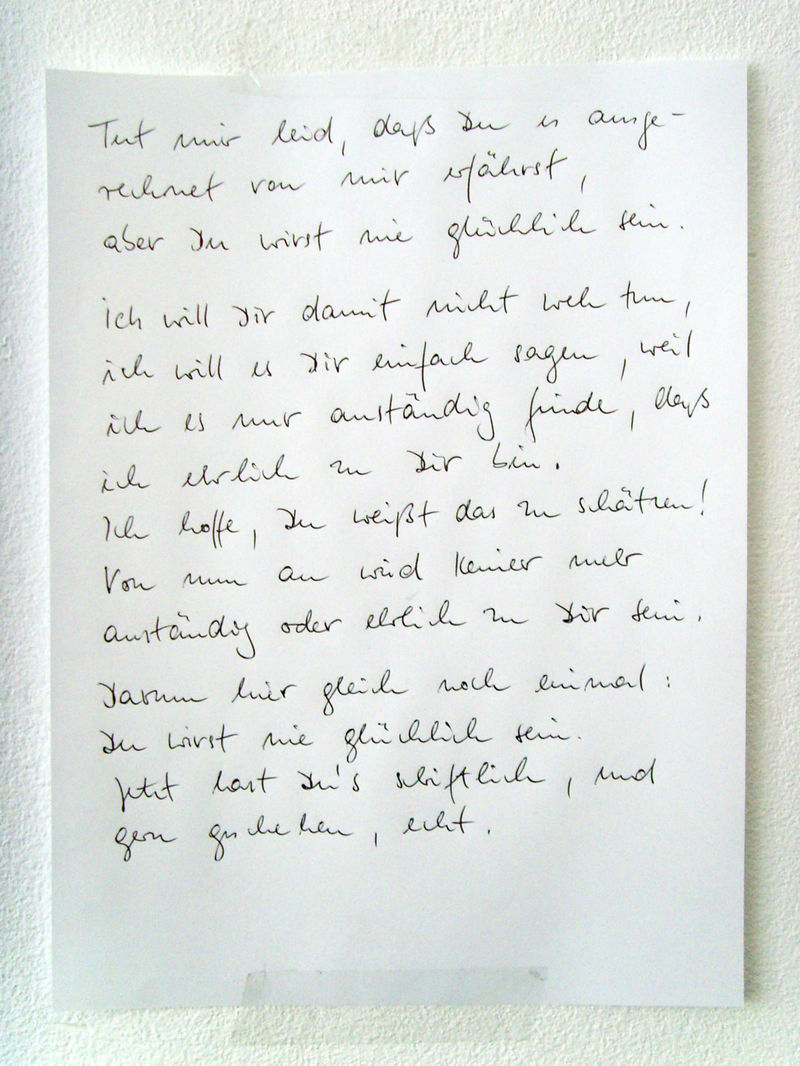 Tut mir leid, daß Du es ausge-
rechnet von mir erfährst,
aber Du wirst nie glücklich sein.
Ich will Dir damit nicht weh tun,
ich will es Dir einfach sagen, weil
ich es nur anständig finde, daß
ich ehrlich zu Dir bin.
Ich hoffe, Du weißt das zu schätzen!
Von nun an wird keiner mehr
anständig oder ehrlich zu Dir sein.
Darum hier gleich noch einmal:
Du wirst nie glücklich sein.
Jetzt hast Du's schriftlich, und
gern geschehen, echt.